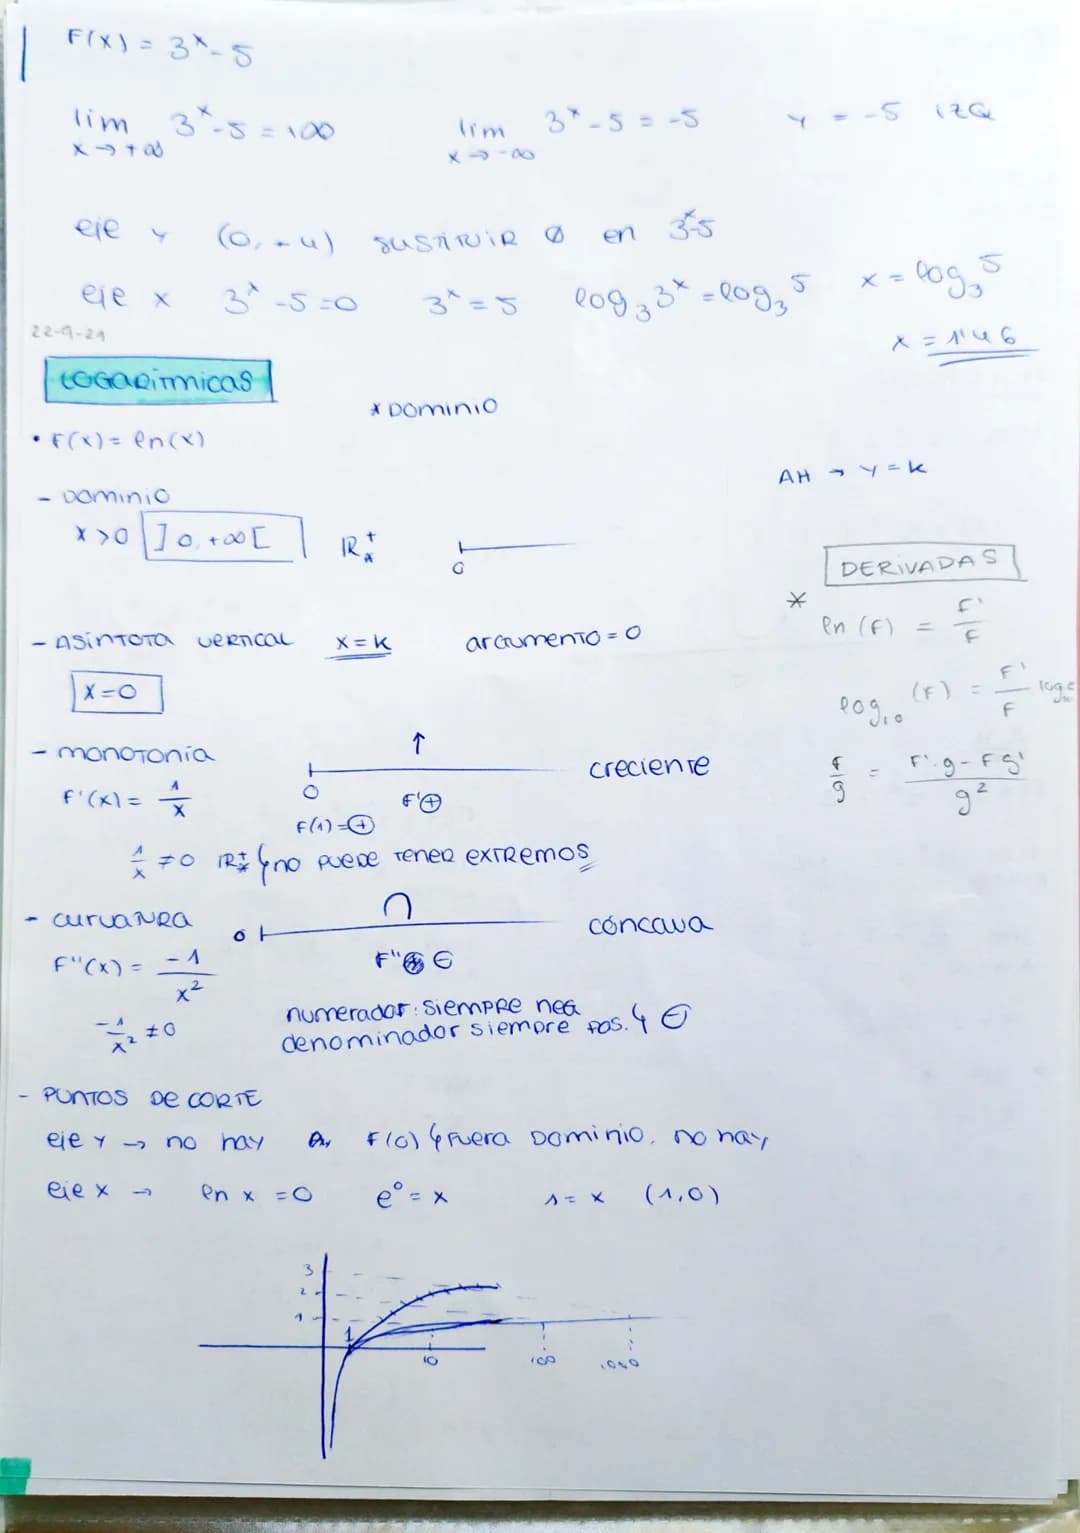 F(x) = 3^x - 5
lim x→+∞ 3^x - 5 = +∞   lim x→-∞ 3^x - 5 = -5   y = -5 IZQ
eje y (0, -4) SUSTITUIR 0 en 3^x-5
eje x 3^x - 5 = 0   3^x = 5   log₃ 3^x = log₃ 5   x = log₃ 5
22-9-21
x = 1'46
LOGARÍTMICAS
* DOMINIO
• F(x) = ln(x)
AH → y = k
- DOMINIO
x > 0 ]0, +∞[ ℝ⁺*
0
DERIVADAS
*
ln (F) = F'/F
- ASÍNTOTA VERTICAL x = k argumento = 0
x = 0
log₁₀ (F) = F'/F log e
- MONOTONÍA ↑ creciente
F'(x) = 1/x
0 F'⊕
F(1) = ⊕
f/g = F'·g - Fg' / g²
1/x ≠ 0 ℝ⁺* ↳ no puede tener extremos
- CURVATURA 0 ∩ cóncava
F''(x) = -1/x²
F'' ⊖
-1/x² ≠ 0
numerador: siempre neg
denominador siempre pos. ↳ ⊖
- PUNTOS DE CORTE
eje y → no hay F(0) ↳ fuera DOMINIO. no hay
eje x → ln x = 0   e⁰ = x   1 = x (1,0)
3
2
1
1
10 100 1000